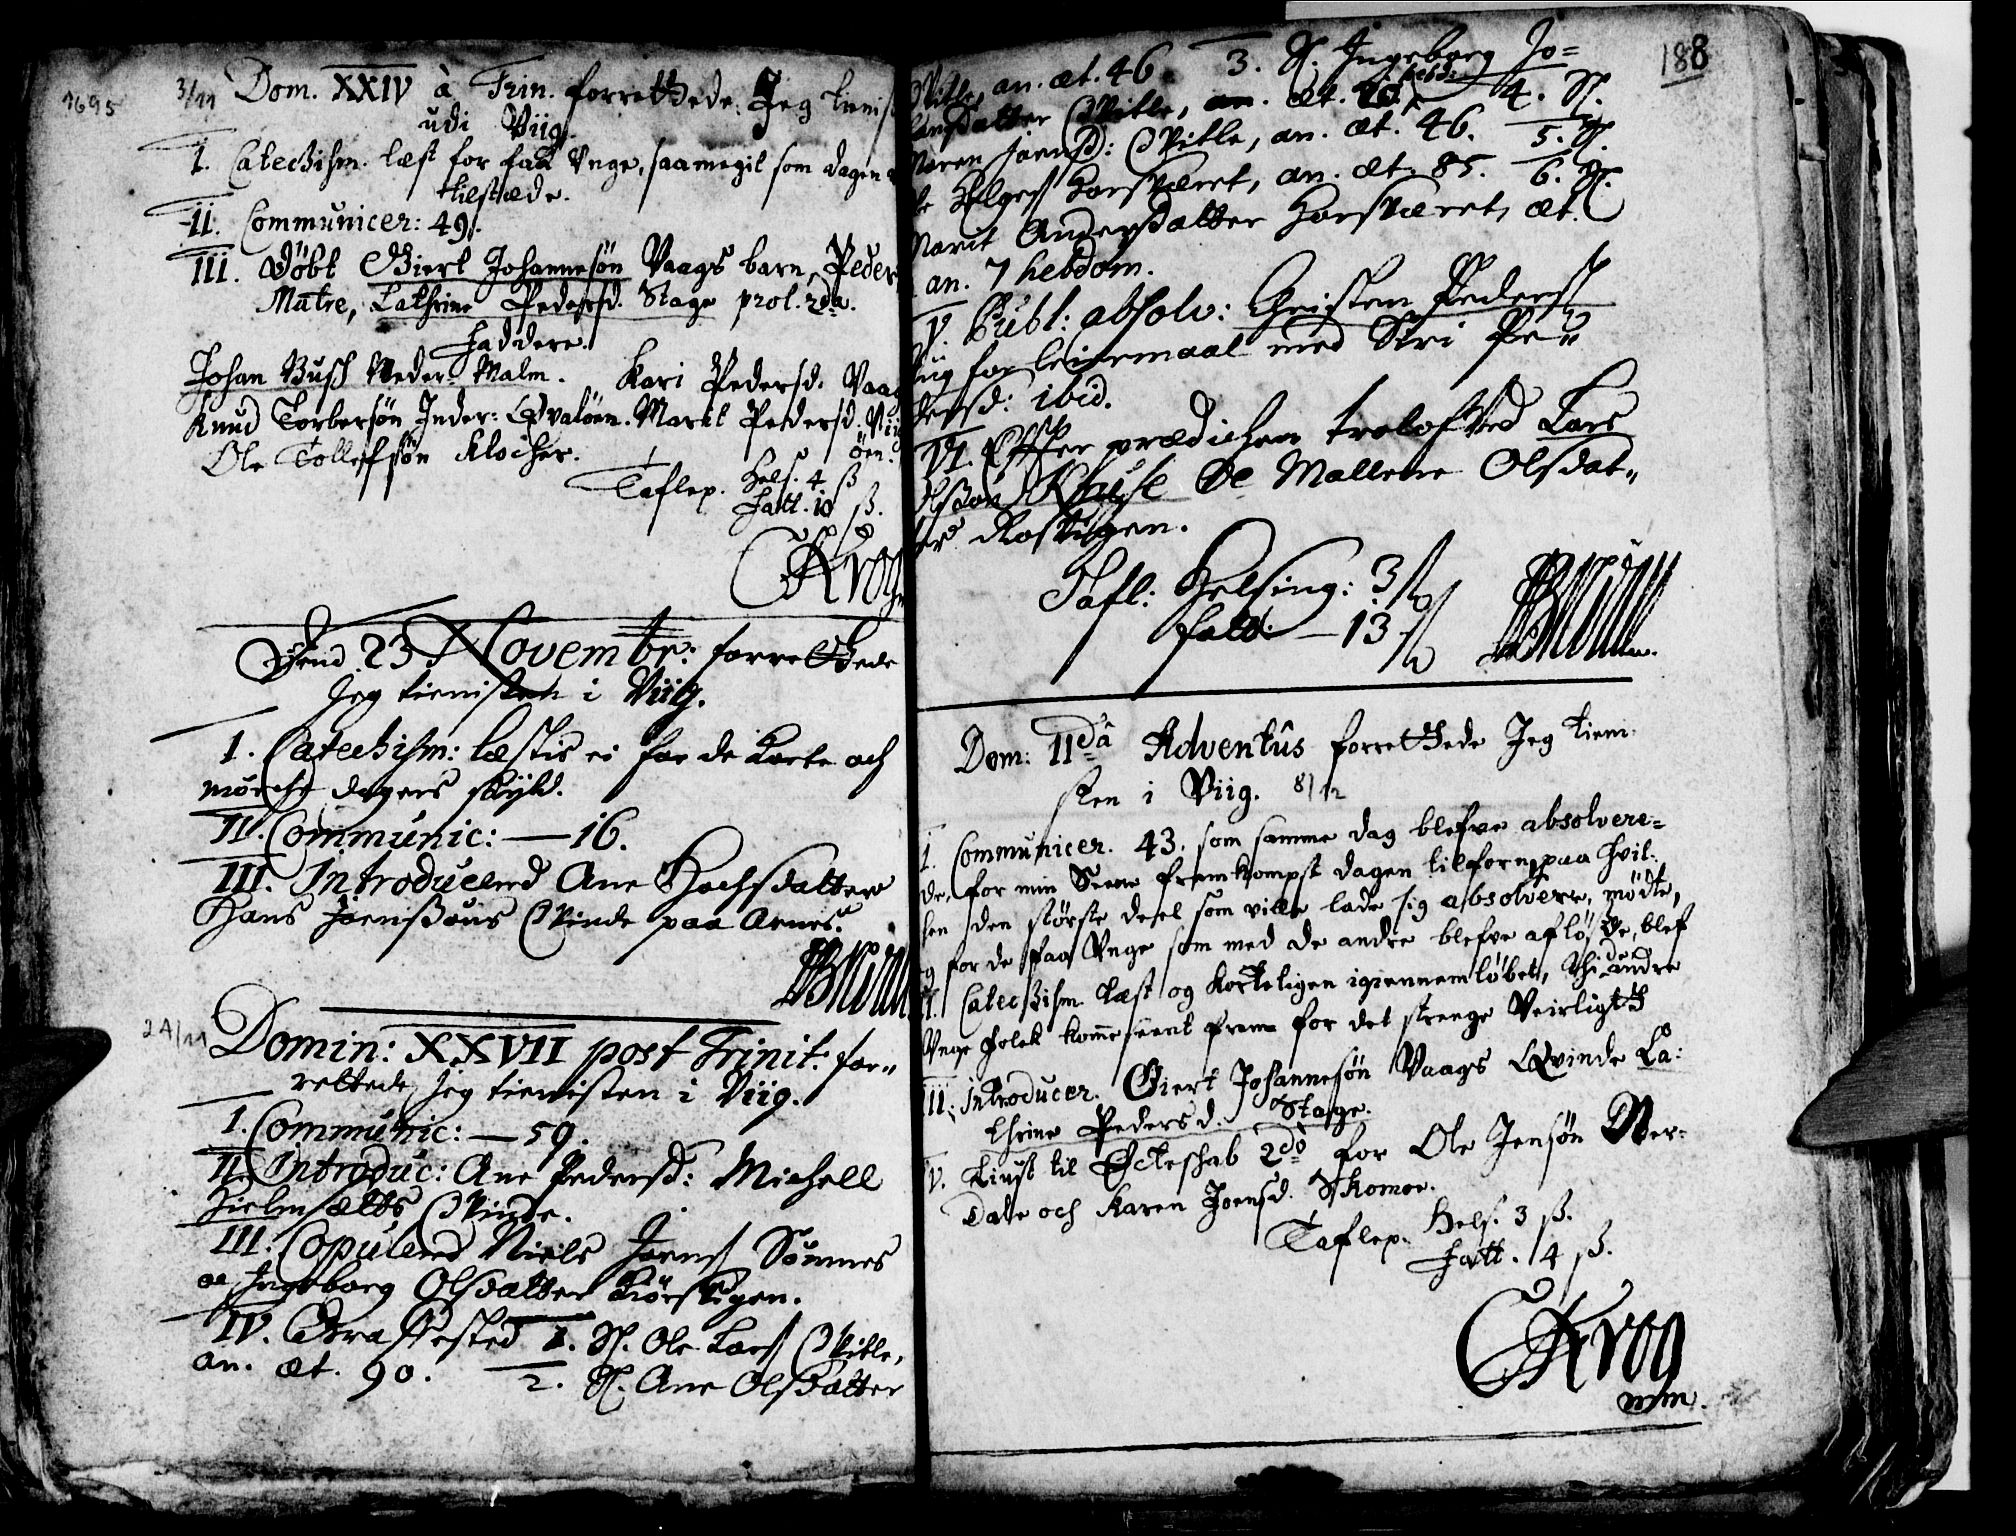 1695
3/11 Dom. XXIV à Trin. forrettede Jeg tienist
udi Viig.
I. Catechism. læst for faa Unge, saamegit som dagen
tilstæde.
II. Communicer: 49.
III. Døbt Giert Johannesøn Vaags barn, Peder
Matre, Cathrine Pedersd. Stage prol. 2da.
Faddere.
Johan Busch Neder Malm. Kari Pedersd. Vaag
Knud Torbersøn Inder: Qvaløen. Marit Pedersd. Vii
Ole Tollefsøn Klocher. öen.
Taflep. Hels. 4 ß
Fatt. 10 ß.
CKrog
Dend 23 Novembr: forrettede
Jeg tienisten i Viig.
I. Catechism: læstis ei for de korte och
mörche dagers skyld.
II. Communic: — 16.
III. Introducerd Ane Hochsdatter
Hans Joenssøns Qvinde paa Arnes.
24/11 Domin: XXVII post Trinit: for„
rettede Jeg tienisten i Viig.
I. Communic: — 59.
II. Introduc: Ane Pedersd: Michell
Hielmsælts Qvinde.
III. Copulerd Niels Joens Sømnes
oc Ingeborg Olsdatter Kiørstigen.
IV. Graffested 1. Sl. Ole Lars Qvitle,
an. æt. 90. 2. Sl. Ane Olsdatter
188
Qvitle, an. æt. 46. 3. Sl. Ingeborg Jo=
hansdatter Qvitle, an. æt. 20 hebd: 4. Sl.
Maren Joensd: Qvitle, an. æt. 46. 5. Sl.
Ole Helges Horsværet, an. æt. 85. 6. Sl.
Marit Andersdatter Horsværet, æt.
an. 7 hebdom.
V. Publ: absolv: Christen Peders
for leiermaal med Siri Pe„
dersd: ibid.
VI. Effter prædichen trolofved Lars
Olssøn Kause oc Mallene Olsdat„
er Rostigen.
Tafl: Helsing: 3 ß
fatt: — 13 ß
Dom: IIdâ Adventûs forrettede Jeg tieni-
sten i Viig. 8/12
I. Communicer. 43. som samme dag blefve absolvere=
de, for min Seene fremkompst dagen tilforn, paa hvil-
hen den största deel som ville lade sig absolvere, mödte,
og for de faa Unge som med de andre blefve aflöste, blef
II. Catechism læst og korteligen igiennemløbet, thi de andre
Unge folck komme seent frem for det strenge Veirligt
III. Introducer. Giert Johannesøn Vaags Qvinde Ca:
thrine Pedersd. Stage.
V. Liust til Ecteschab 2do for Ole Jensøn Ner-
Dale och Karen Joensd. Skomoe.
Taflep. Hels. 3 ß.
Fatt. 4 ß.
CKrog
mm.